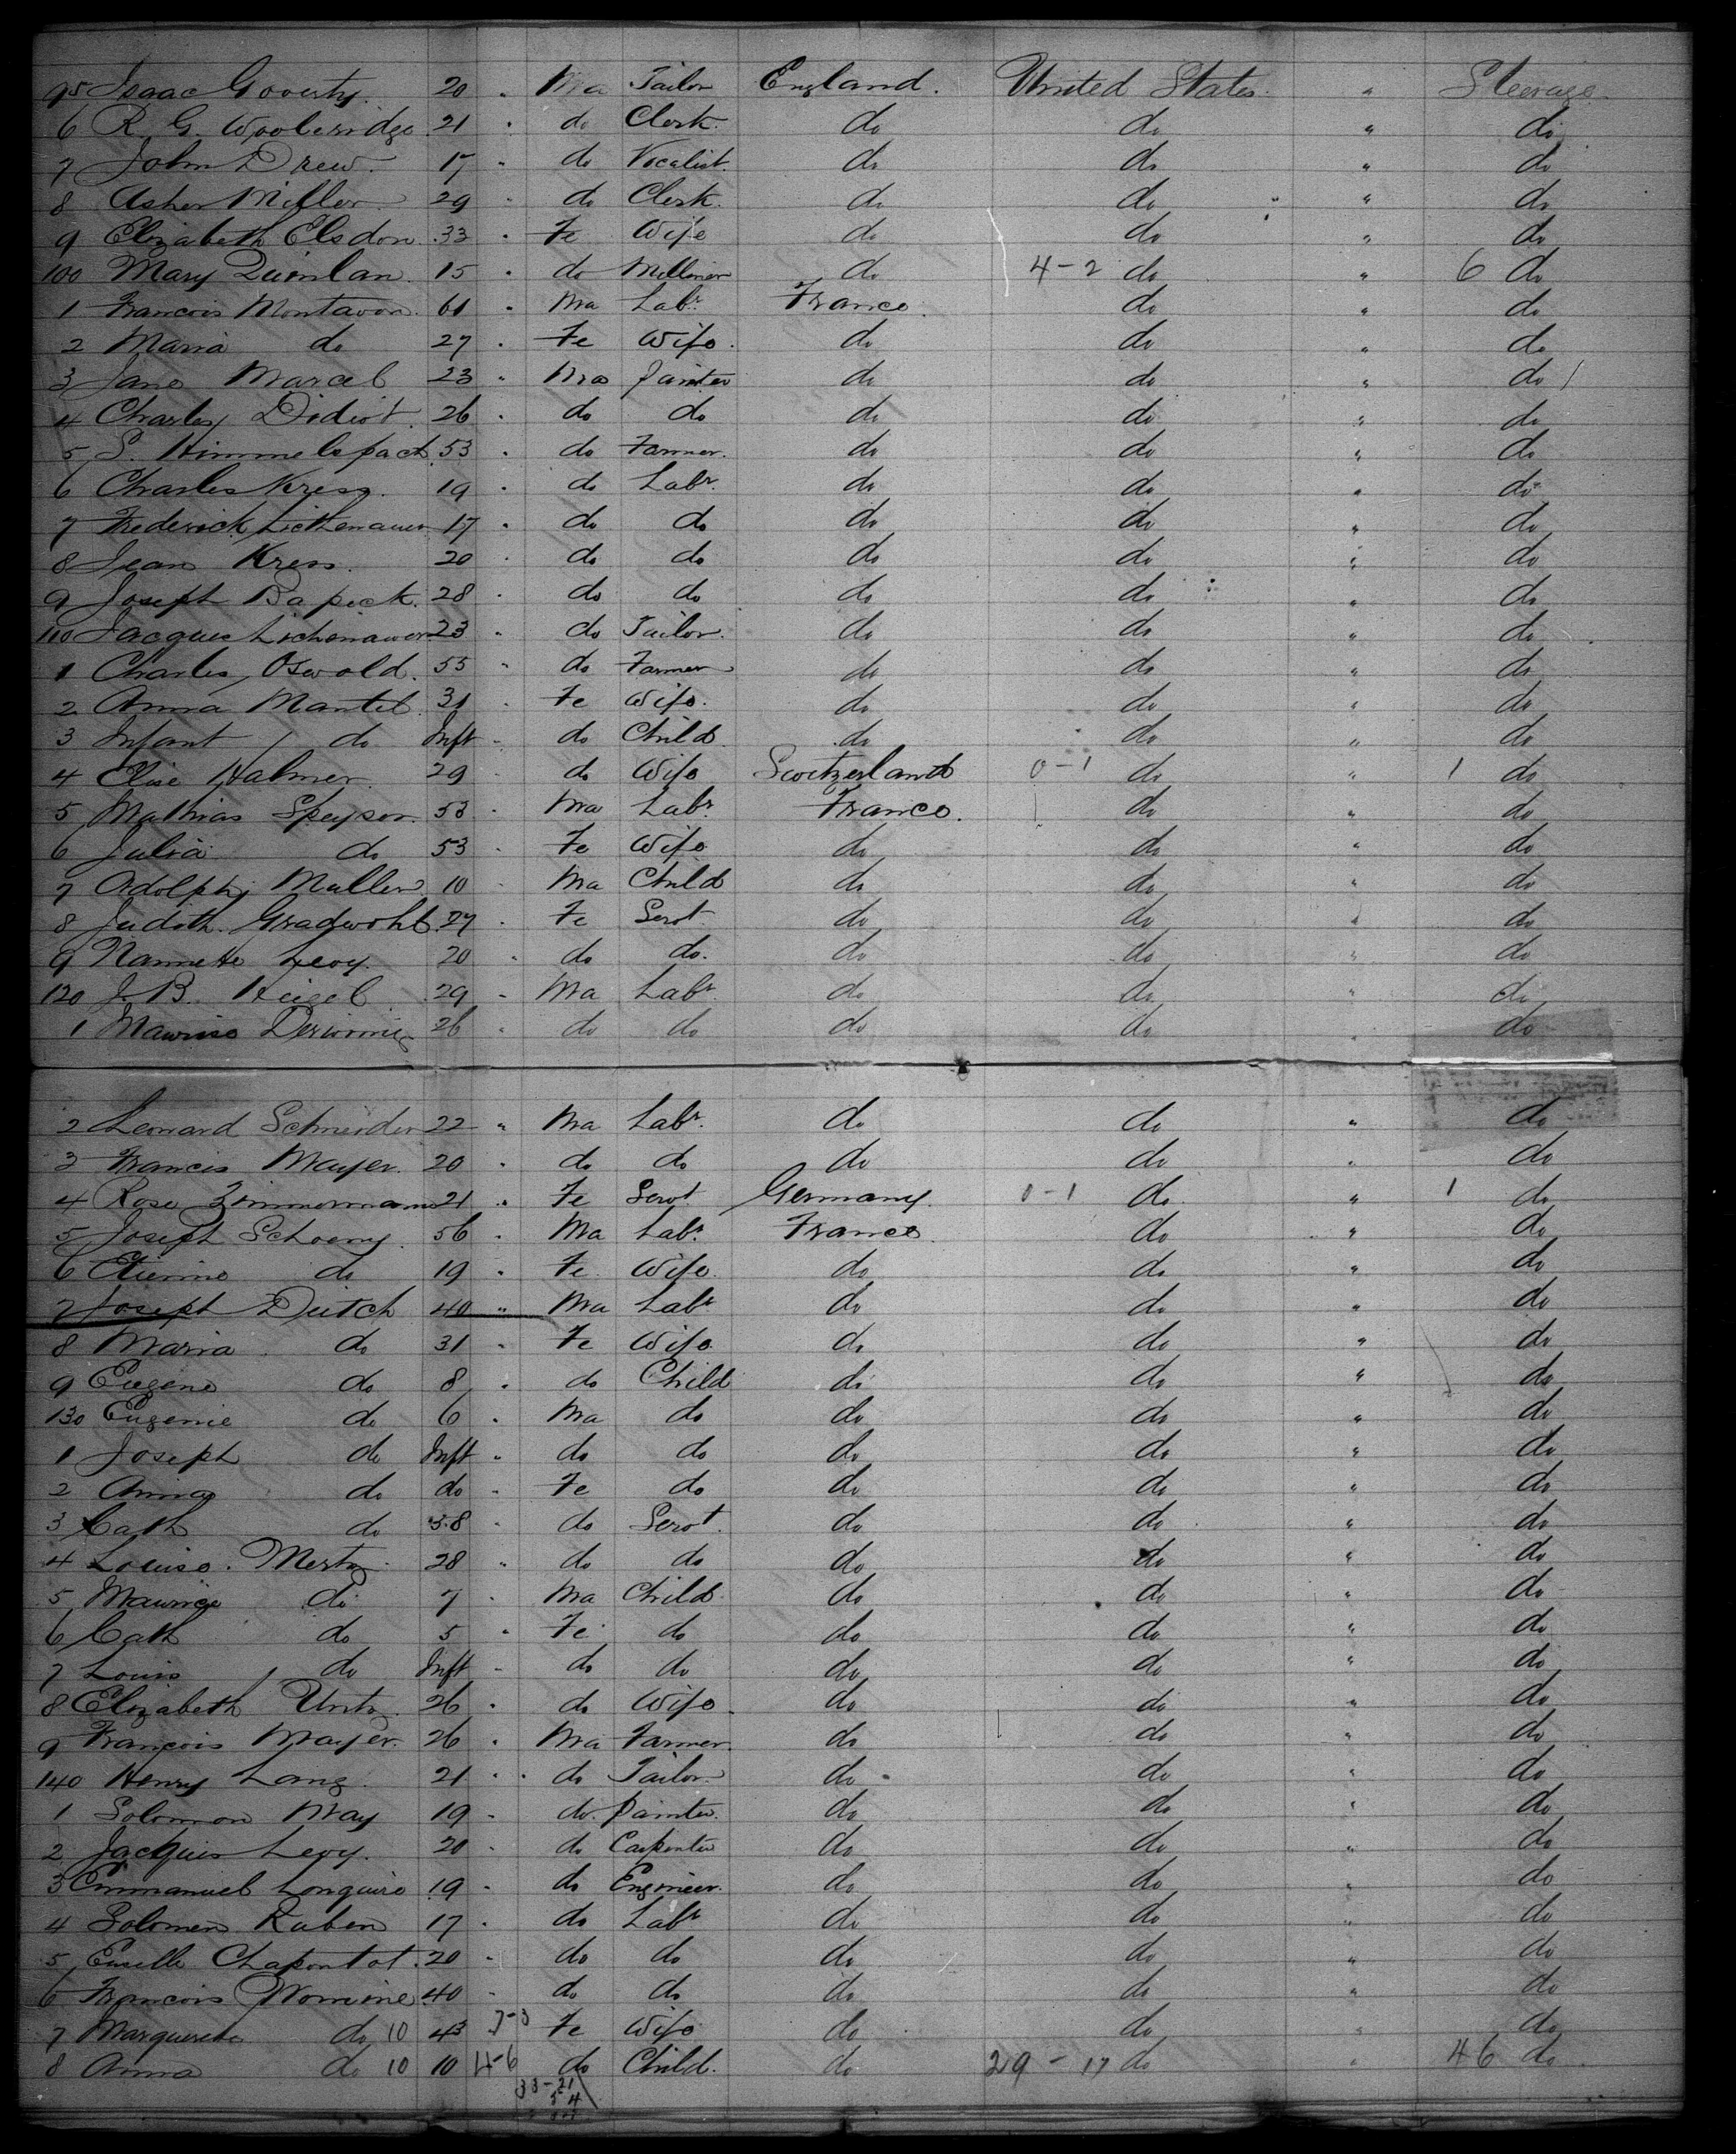 95 Isaac Goverty. 20 " Ma Tailor England. United States " Steerage
6 R. G. Wooleridge 21 " do Clerk. do do " do
7 John Drew. 17 " do Vocalist. do do " do
8 Asher Miller 29 " do Clerk. do do " do
9 Elizabeth Elsdon 33 " Fe Wife do do " do
100 Mary Quinlan 15 " do Milliner do 4-2 do " 6 do
1 Francois Montavon 61 " Ma Labr. France. do " do
2 Maria do 27 " Fe Wife. do do " do
3 Jane Marcel 23 " Ma Painter do do " do 1
4 Charles Didiot 26 " do do do do " do
5 S. Himmelspach 53 " do Farmer. do do " do
6 Charles Kress. 19 " do Labr. do do " do
7 Frederick Licthenauer 17 " do do do do " do
8 Jean Kress. 20 " do do do do " do
9 Joseph Bapick. 28 " do do do do " do
110 Jacques Lichenawer 23 " do Tailor. do do " do
1 Charles Oswald. 55 " do Farmer do do " do
2 Anna Mantel 31 " Fe Wife. do do " do
3 Infant do Inft " do Child do do " do
4 Elise Halmer 29 " do Wife Switzerland 0-1 do " 1 do
5 Mathias Speyser. 53 " Ma Labr. France. do " do
6 Julia do 53 " Fe Wife do do " do
7 Adolph Muller 10 " Ma Child do do " do
8 Judith Gradwohl 27 " Fe Servt do do " do
9 Nannette Levy. 20 " do do. do do " do
120 J. B. Heigel 29 " Ma Labr. do do " do
1 Maurise 26 " do do do do " do
2 Leonard Schneider 22 " Ma Labr. do do " do
3 Francis Mayer. 20 " do do do do " do
4 Rose Zimmermann 21 " Fe Servt Germany. 0-1 do " 1 do
5 Joseph Schoeny. 56 " Ma Labr. France. do " do
6 Etienne do 19 " Fe Wife. do do " do
7 Joseph Deitch 40 " Ma Labr do do " do
8 Maria do 31 " Fe Wife do do " do
9 Eugene do 8 " do Child do do " do
130 Eugenie do 6 " Ma do do do " do
1 Joseph do Inft " do do do do " do
2 Anna do do " Fe do do do " do
3 Cath do 38 " do Servt. do do " do
4 Louise Mertz 28 " do do do do " do
5 Maurice do 7 " Ma Child do do " do
6 Cath do 5 " Fe do do do " do
7 Louis do Inft " do do do do " do
8 Elizabeth Untz 26 " do Wife. do do " do
9 Francois Mayer. 26 " Ma Farmer. do do " do
140 Henry Lang 21 " do Tailor. do do " do
1 Solomon May 19 " do. Painter. do do " do
2 Jacques Levy. 20 " do Carpenter do do " do
3 Emmanuel Longuire 19 " do Engineer. do do " do
4 Solomen Ruben 17 " do Labr do do " do
5 Chapontot. 20 " do do do do " do
6 Francois Nomine. 40 " do do do do " do
7 Marguerete do 10 43 7-3 Fe Wife do do " do
8 Anna do 10 10 4-6 do Child. do 29-17 do " 46 do
33-21
54